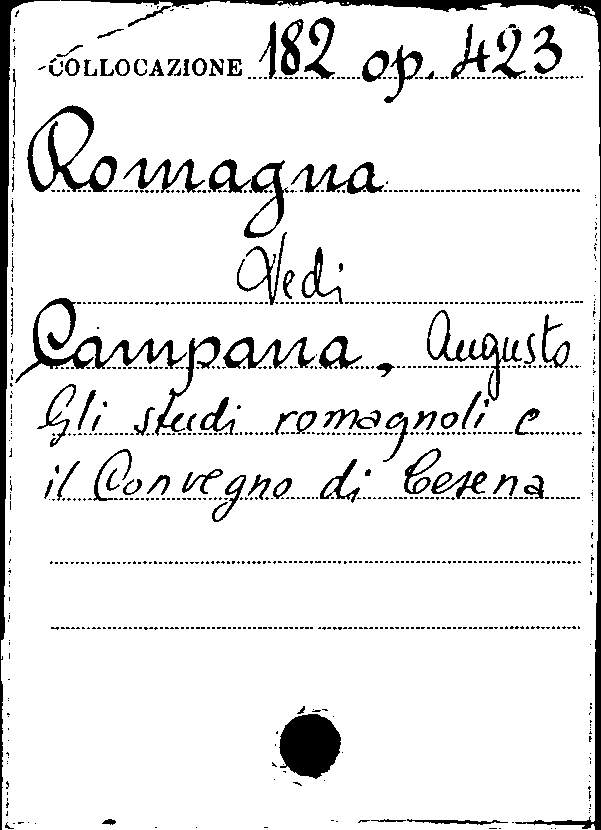 COLLOCAZIONE 182 op. 423
Romagna
Vedi
Campana, Augusto
Gli studi romagnoli e
il Convegno di Cesena